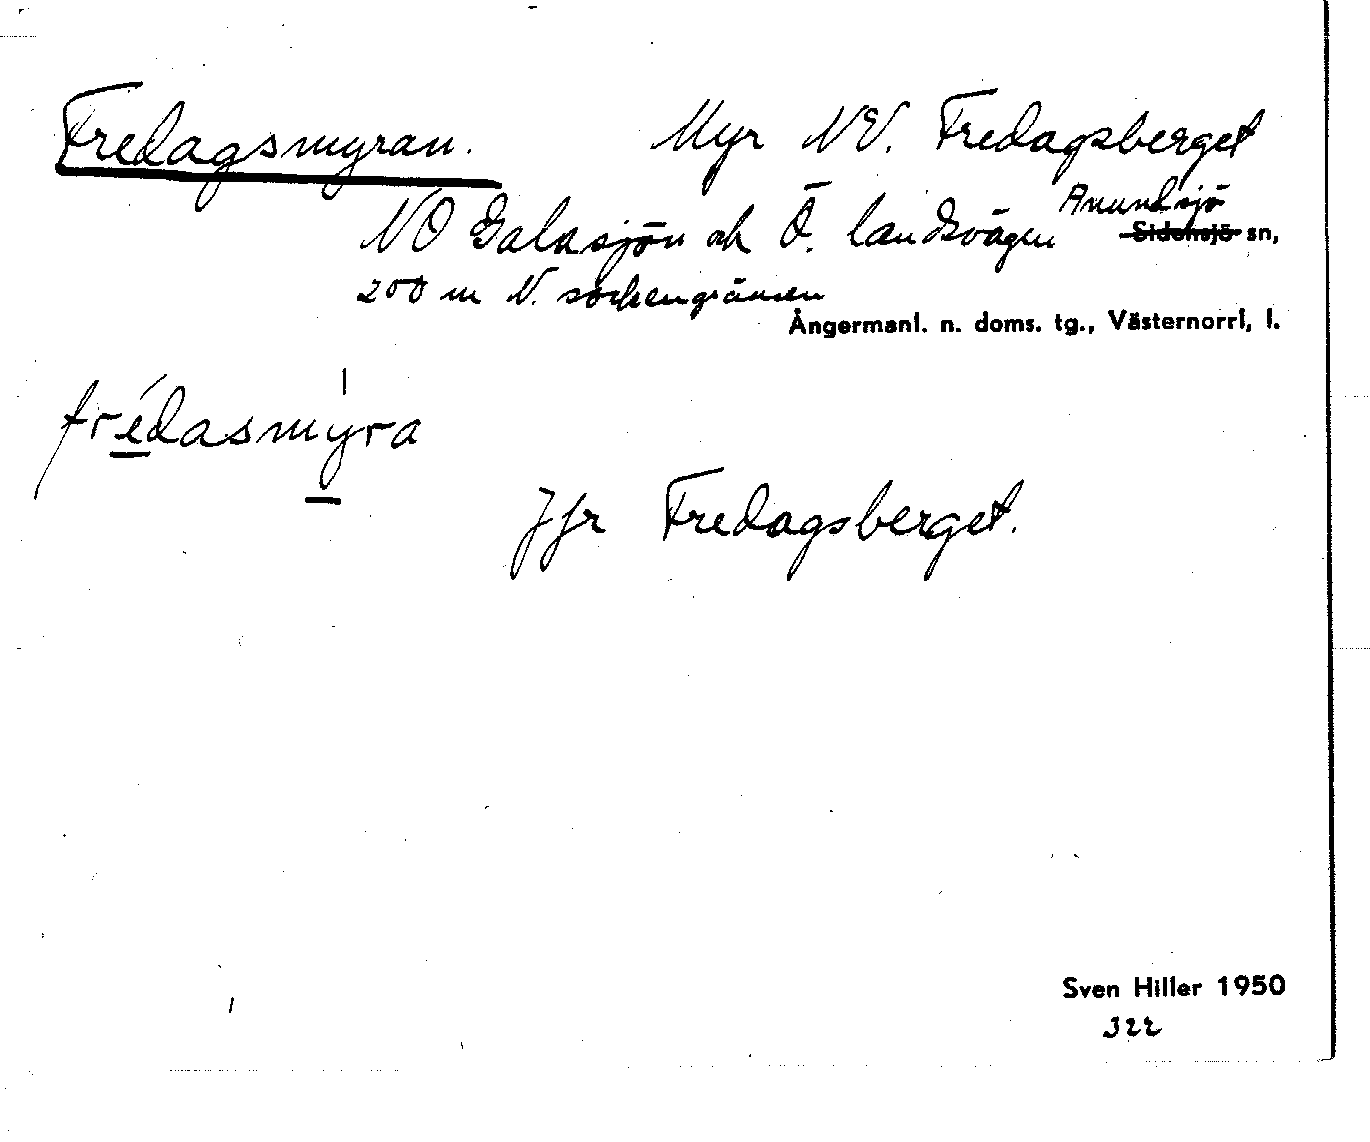 Fredagsmyran. Myr NV. Fredagsberget
NO Galasjön och Ö. landsvägen Anundsjö
Sidensjö sn,
200 m N. sockengränsen
Ångermanl. n. doms. tg., Västernorrl, l.
frédasmýra
Jfr Fredagsberget.
Sven Hiller 1950
322